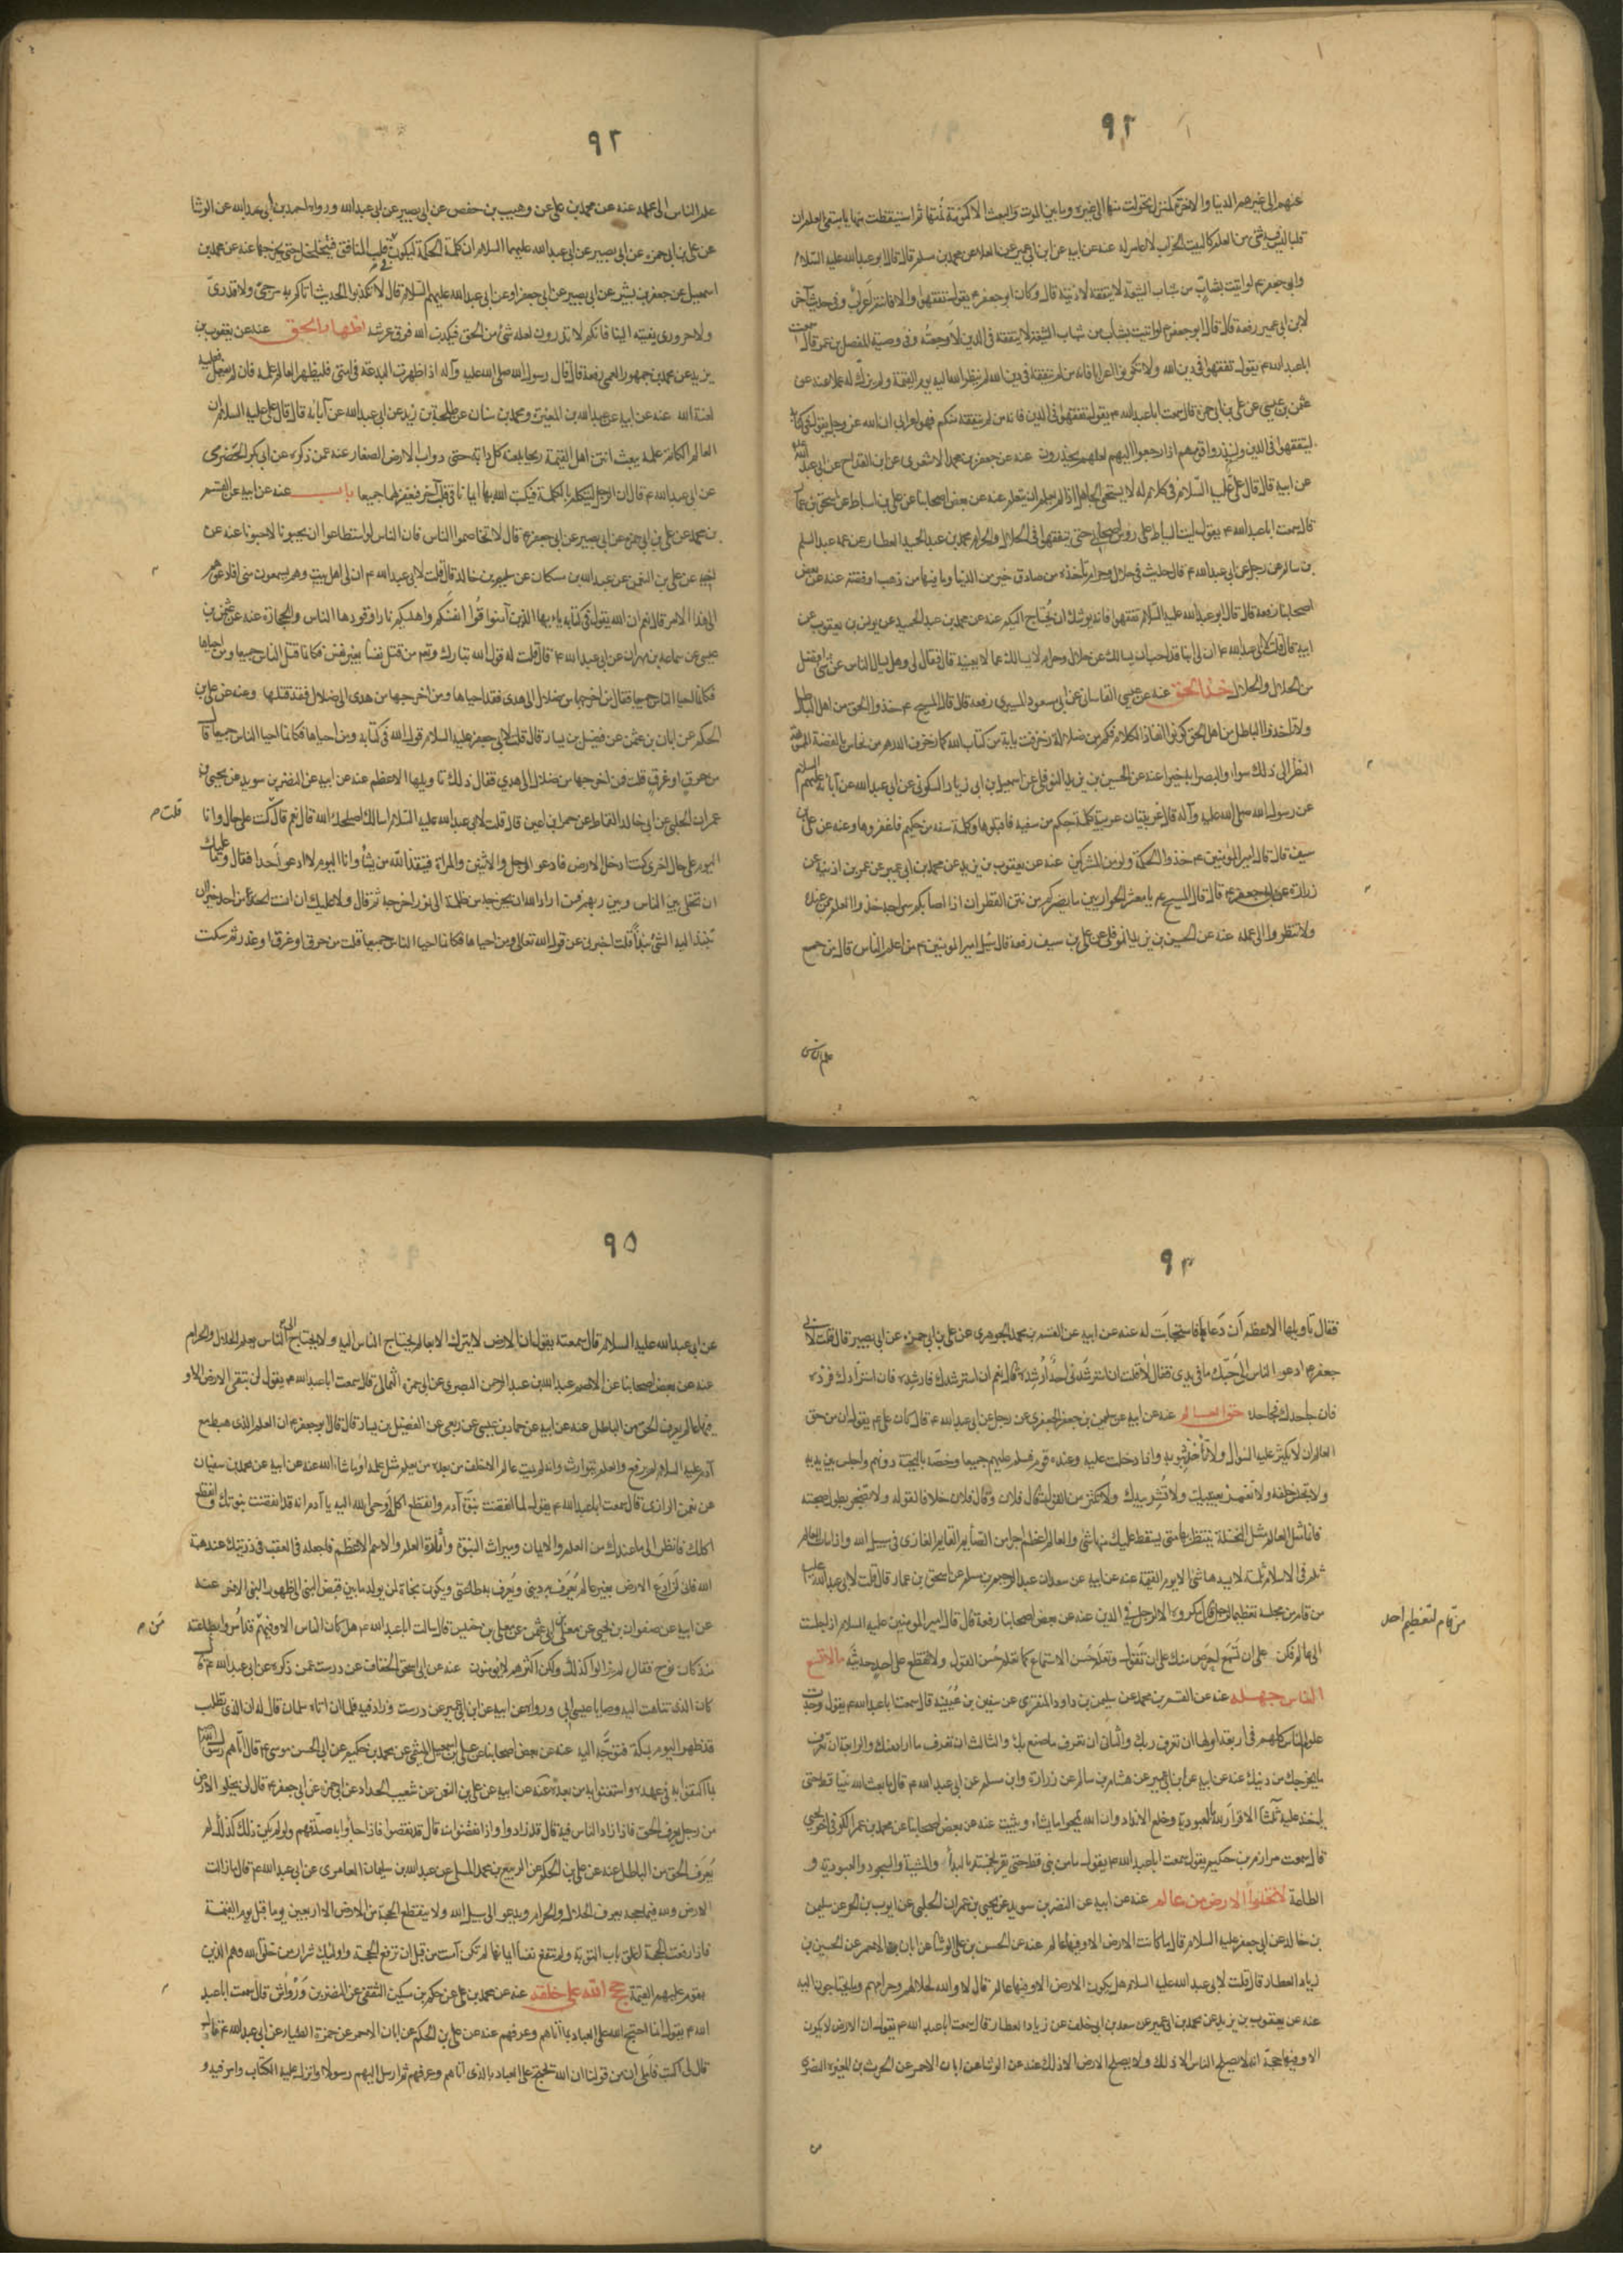 ٩٢
عنهم الى غيرهم الدنيا والاخرة كمنزل تحولت منها الى غيره وما بين الموت والبعث الا كنومة نمتها ثم استيقظت منها يا مبتغي العلم ان
قلبا ليس فيه شئ من العلم كالبيت الخراب لا عامر له عنه عن ابيه عن ابن ابي عمير عن العلا عن محمد بن مسلم قال قال ابو عبد الله عليه السلام
وابو جعفر ع لو اتيت بشاب من شباب الشيعة لا يتفقه لادبته قال وكان ابو جعفر ع يقول تفقهوا والا فانتم اعراب وفي حديث آخر
لابن ابي عمير رفعه قال قال ابو جعفر ع لو اتيت بشاب من شباب الشيعة لا يتفقه في الدين لاوجعته وفي وصية المفضل بن عمر قال سمعت
ابا عبد الله ع يقول تفقهوا في دين الله ولا تكونوا اعرابا فانه من لم يتفقه في دين الله لم ينظر الله اليه يوم القيمة ولم يزك له عملا عنه عن
عثمن بن عيسى عن علي بن ابي حمزة قال سمعت ابا عبد الله ع يقول تفقهوا في الدين فانه من لم يتفقه منكم فهو اعرابي ان الله عز وجل يقول في كتابه
ليتفقهوا في الدين ولينذروا قومهم اذا رجعوا اليهم لعلهم يحذرون عنه عن جعفر بن محمد الاشعري عن ابن القداح عن ابي عبد الله عليه
عن ابيه قال قال علي عليه السلام في كلام له لا يستحي الجاهل اذا لم يعلم ان يتعلم عنه عن بعض اصحابنا عن علي بن اسباط عن اسحق بن عمار
قال سمعت ابا عبد الله ع يقول ليت السياط على رؤس اصحابي حتى يتفقهوا في الحلال والحرام محمد بن عبد الحميد العطار عن عمه عبد السلم
بن سالم عن رجل عن ابي عبد الله ع قال حديث في حلال وحرام تاخذه من صادق خير من الدنيا وما فيها من ذهب او فضة عنه عن بعض
اصحابنا رفعه قال قال ابو عبد الله عليه السلام تفقهوا فانه يوشك ان يحتاج اليكم عنه عن محمد بن عبد الحميد عن يونس بن يعقوب عن
ابيه قال قلت لابي عبد الله ع ان لي ابنا قد احب ان يسالك عن حلال وحرام لا يسالك عما لا يعنيه قال فقال لي وهل يسال الناس عن شئ افضل
من الحلال والحلال خذ الحق عنه عن عيسى القاساني عن ابي مسعود الميسري رفعه قال قال المسيح ع خذوا الحق من اهل الباطل
ولا تاخذوا الباطل من اهل الحق كونوا نقاد الكلام فكم من ضلالة زخرفت باية من كتاب الله كما زخرف الدرهم من نحاس بالفضة المموهة
النظر الى ذلك سواء والبصراء به خبراء عنه عن الحسين بن يزيد النوفلي عن اسمعيل بن ابي زياد السكوني عن ابي عبد الله عن آبائه عليهم السلام
عن رسول الله صلى الله عليه وآله قال غريبتان غريبة كلمة حكم من سفيه فاقبلوها وكلمة سفه من حكيم فاغفروها وعنه عن علي بن
سيف قال قال امير المؤمنين ع خذوا الحكمة ولو من المشركين عنه عن يعقوب بن يزيد عن محمد بن ابي عمير عن عمر بن اذينة عن
زرارة عن ابي جعفر ع قال قال المسيح ع يا معشر الحواريين ما يضركم من نتن القطران اذا اصابكم سراجه خذوا العلم ممن عنده
ولا تنظروا الى عمله عنه عن الحسين بن يزيد النوفلي عن علي بن سيف رفعه قال سئل امير المؤمنين ع من اعلم الناس قال من جمع
علم الناس
٩٣
علم الناس الى علمه عنه عن محمد بن علي عن وهيب بن حفص عن ابي بصير عن ابي عبد الله ورواه احمد بن ابي عبد الله عن الوشا
عن علي بن ابي حمزه عن ابي بصير عن ابي عبد الله عليهما السلام ان كلمة الحكمة لتكون في قلب المنافق فتجلجل حتى يخرجها عنه عن محمد بن
اسمعيل عن جعفر بن بشير عن ابي بصير عن ابي جعفر او عن ابي عبد الله عليهم السلام قال لا تكذبوا الحديث اتاكم به مرجئ ولا قدري
ولا حروري ينسبه الينا فانكم لا تدرون لعله شئ من الحق فيكذب الله فوق عرشه اظهار الحق عنه عن يعقوب بن
يزيد عن محمد بن جمهور العمي رفعه قال قال رسول الله صلى الله عليه وآله اذا ظهرت البدعة في امتي فليظهر العالم علمه فان لم يفعل فعليه
لعنة الله عنه عن ابيه عن عبد الله بن المغيرة ومحمد بن سنان عن طلحة بن زيد عن ابي عبد الله عن آبائه قال قال علي عليه السلام ان
العالم الكاتم علمه يبعث انتن اهل القيمة ريحا يلعنه كل دابة حتى دواب الارض الصغار عنه عمن ذكره عن ابي بكر الحضرمي
عن ابي عبد الله ع قال ان الرجل ليتكلم بالكلمة فيكتب الله بها ايمانا في قلب آخر فيغفر لهما جميعا باب عنه عن ابيه عن القسم
بن محمد عن علي بن ابي حمزه عن ابي بصير عن ابي جعفر ع قال لا تخاصموا الناس فان الناس لو استطاعوا ان يحبونا لاحبونا عنه عن
ابيه عن علي بن النعمن عن عبد الله بن مسكان عن سليمن بن خالد قال قلت لابي عبد الله ع ان لي اهل بيت وهم يسمعون مني افادعوهم
الى هذا الامر قال نعم ان الله يقول في كتابه يا ايها الذين آمنوا قوا انفسكم واهليكم نارا وقودها الناس والحجارة عنه عن عثمن بن
عيسى عن سماعة بن مهران عن ابي عبد الله ع قال قلت له قول الله تبارك وتع من قتل نفسا بغير نفس فكانما قتل الناس جميعا ومن احياها
فكانما احيا الناس جميعا فقال من اخرجها من ضلال الى هدى فقد احياها ومن اخرجها من هدى الى ضلال فقد قتلها وعنه عن علي بن
الحكم عن ابان بن عثمن عن فضيل بن يسار قال قلت لابي جعفر عليه السلام قول الله في كتابه ومن احياها فكانما احيا الناس جميعا قال
من حرق او غرق قلت فمن اخرجها من ضلال الى هدى فقال ذلك تاويلها الاعظم عنه عن ابيه عن النضر بن سويد عن يحيى بن
عمران الحلبي عن ابي خالد القماط عن حمران بن اعين قال قلت لابي عبد الله عليه السلام اسالك اصلحك الله قال نعم قال كنت على حال وانا
قلت م
اليوم على حال اخرى كنت ادخل الارض فادعو الرجل والاثنين والمراة فينقذ الله من يشاء وانا اليوم لا ادعو احدا فقال وما عليك
ان تخلي بين الناس وبين ربهم فمن اراد الله ان يخرجه من ظلمة الى نور اخرجه ثم قال ولا عليك ان آنست احدا من احد خيرا ان
تنبذ اليه الشئ نبذا قلت اخبرني عن قول الله تعالى ومن احياها فكانما احيا الناس جميعا قلت من حرق او غرق او غدر ثم سكت
٩٤
فقال تاويلها الاعظم ان دعاها فاستجابت له عنه عن ابيه عن القسم بن محمد الجوهري عن علي بن ابي حمزه عن ابي بصير قال قلت لابي
جعفر ع ادعو الناس الى حبك ما في يدي فقال لا قلت ان استرشدني احد ارشده قال نعم ان استرشدك فارشده فان استزادك فزده
فان جاحدك فجاحده حق العالم عنه عن ابيه عن سليمن بن جعفر الجعفري عن رجل عن ابي عبد الله ع قال كان علي ع يقول ان من حق
العالم ان لا يكثر عليه السوال ولا تاخذ بثوبه واذا دخلت عليه وعنده قوم فسلم عليهم جميعا وخصه بالتحية دونهم واجلس بين يديه
ولا تجلس خلفه ولا تغمز بعينيك ولا تشر بيدك ولا تكثر من القول قال فلان وقال فلان خلافا لقوله ولا تضجر بطول صحبته
فانما مثل العالم مثل النخلة ينتظر بها متى يسقط عليك منها شئ والعالم اعظم اجرا من الصائم القائم الغازي في سبيل الله واذا مات العالم
ثلم في الاسلام ثلمة لا يسدها شئ الا يوم القيمة عنه عن ابيه عن سعدان عبد الرحيم بن مسلم عن اسحق بن عمار قال قلت لابي عبد الله عليه
من قام من مجلسه تعظيما لرجل قال مكروه الا لرجل في الدين عنه عن بعض اصحابنا رفعه قال قال امير المؤمنين عليه السلام اذا جلست
من قام لتعظيم احد
الى عالم فكن على ان تسمع احرص منك على ان تقول وتعلم حسن الاستماع كما تعلم حسن القول ولا تقطع على احد حديثه ما لا يسع
الناس جهله عنه عن القسم بن محمد عن سليمن بن داود المنقري عن سفين بن عيينة قال سمعت ابا عبد الله ع يقول وجدت
علوم الناس كلهم في اربعة اولها ان تعرف ربك والثاني ان تعرف ما صنع بك والثالث ان تعرف ما اراد منك والرابعة ان تعرف
ما يخرجك من دينك عنه عن ابيه عن ابن ابي عمير عن هشام بن سالم عن زرارة وابن مسلم عن ابي عبد الله ع قال ما بعث الله نبيا قط حتى
ياخذ عليه ثلثا الاقرار لله بالعبودية وخلع الانداد وان الله يمحو ما يشاء ويثبت عنه عن بعض اصحابنا عن محمد بن عمر الكوفي اخو يحيى
قال سمعت مرازم بن حكيم يقول سمعت ابا عبد الله ع يقول ما من نبي قط حتى يقر بخمسة بالبداء والمشية والسجود والعبودية و
الطاعة لا تخلو الارض من عالم عنه عن ابيه عن النضر بن سويد عن يحيى بن عمران الحلبي عن ايوب بن الحر عن سليمن
بن خالد عن ابي جعفر عليه السلام قال ما كانت الارض الا وفيها عالم عنه عن الحسن بن علي الوشا عن ابان الاحمر عن الحسين بن
زياد العطار قال قلت لابي عبد الله عليه السلام هل يكون الارض الا وفيها عالم قال لا والله لحلالهم وحرامهم وما يحتاجون اليه
عنه عن يعقوب بن يزيد عن محمد بن ابي عمير عن سعد بن ابي خلف عن زياد العطار قال سمعت ابا عبد الله ع يقول ان الارض لا يكون
الا وفيها حجة انه لا يصلح الناس الا ذلك ولا يصلح الارض الا ذلك عنه عن الوشا عن ابان الاحمر عن الحرث بن المغيرة النضري
٩٥
عن ابي عبد الله عليه السلام قال سمعته يقول ان الارض لا يترك الا بعالم يحتاج الناس اليه ولا يحتاج الى الناس يعلم الحلال والحرام
عنه عن بعض اصحابنا عن الاصم عبد الله بن عبد الرحمن البصري عن ابي حمزه الثمالي قال سمعت ابا عبد الله ع يقول لن تبقى الارض الا و
فيها عالم يعرف الحق من الباطل عنه عن ابيه عن حماد بن عيسى عن ربعي عن الفضيل بن يسار قال قال ابو جعفر ع ان العلم الذي هبط مع
آدم عليه السلام لم يرفع والعلم يتوارث وانه لم يمت عالم الا خلف من بعده من يعلم مثل علمه او ما شاء الله عنه عن ابيه عن محمد بن سفيان
عن نعمن الرازي قال سمعت ابا عبد الله ع يقول لما انقضت نبوة آدم وانقطع اكله اوحى الله اليه يا آدم انه قد انقضت نبوتك وانقطع
اكلك فانظر الى ما عندك من العلم والايمان وميراث النبوة واثرة العلم والاسم الاعظم فاجعله في العقب في ذريتك عند هبة
الله فاني لم ادع الارض بغير عالم يعرف به ديني ويعرف به طاعتي ويكون نجاة لمن يولد ما بين قبض النبي الى ظهور النبي الاخر عنه
عن ابيه عن صفوان بن يحيى عن معلى ابي عثمن عن معلى بن خنيس قال سالت ابا عبد الله ع هل كان الناس الا وفيهم قد امروا بطاعته
من م
منذ كان نوح فقال لم يزالوا كذلك ولكن اكثرهم لا يؤمنون عنه عن ابي اسحق الخفاف عن درست عمن ذكره عن ابي عبد الله ع قال
كان الذي تناهت اليه وصايا عيسى ابي ورواه عن ابيه عن ابن ابي عمير عن درست وزاد فيه فلما ان اتاه سلمان قال له ان الذي تطلب
قد ظهر اليوم بمكة فتوجه اليه عنه عن بعض اصحابنا عن علي بن اسمعيل الميثمي عن محمد بن حكيم عن ابي الحسن موسى ع قال اتاهم رسول الله
بما اكتفوا به في عهده واستغنوا به من بعده عنه عن ابيه عن علي بن النعمن عن شعيب الحداد عن ابي حمزه عن ابي جعفر ع قال لن يخلو الارض
من رجل يعرف الحق فاذا زاد الناس فيه قال قد زادوا واذا نقصوا منه قال قد نقصوا فاذا جاؤا به صدقهم ولو لم يكن ذلك كذلك لم
يعرف الحق من الباطل عنه عن علي بن الحكم عن الربيع بن محمد المسلي عن عبد الله بن سليمان العامري عن ابي عبد الله ع قال ما زالت
الارض ولله فيها حجة يعرف الحلال والحرام ويدعو الى سبيل الله ولا ينقطع الحجة من الارض الا اربعين يوما قبل يوم القيمة
فاذا رفعت الحجة اغلق باب التوبة ولم ينفع نفسا ايمانها لم تكن آمنت من قبل ان ترفع الحجة واولئك شرار من خلق الله وهم الذين
يقوم عليهم القيمة حجج الله على خلقه عنه عن محمد بن علي عن حكم بن مسكين الثقفي عن النضر بن قرواش قال سمعت ابا عبد
الله ع يقول انما احتج الله على العباد بما آتاهم وعرفهم عنه عن علي بن الحكم عن ابان الاحمر عن حمزة الطيار عن ابي عبد الله ع قال
قال لي اكتب فاملى ان من قولنا ان الله يحتج على العباد بالذي آتاهم وعرفهم ثم ارسل اليهم رسولا وانزل عليه الكتاب وامر فيه و